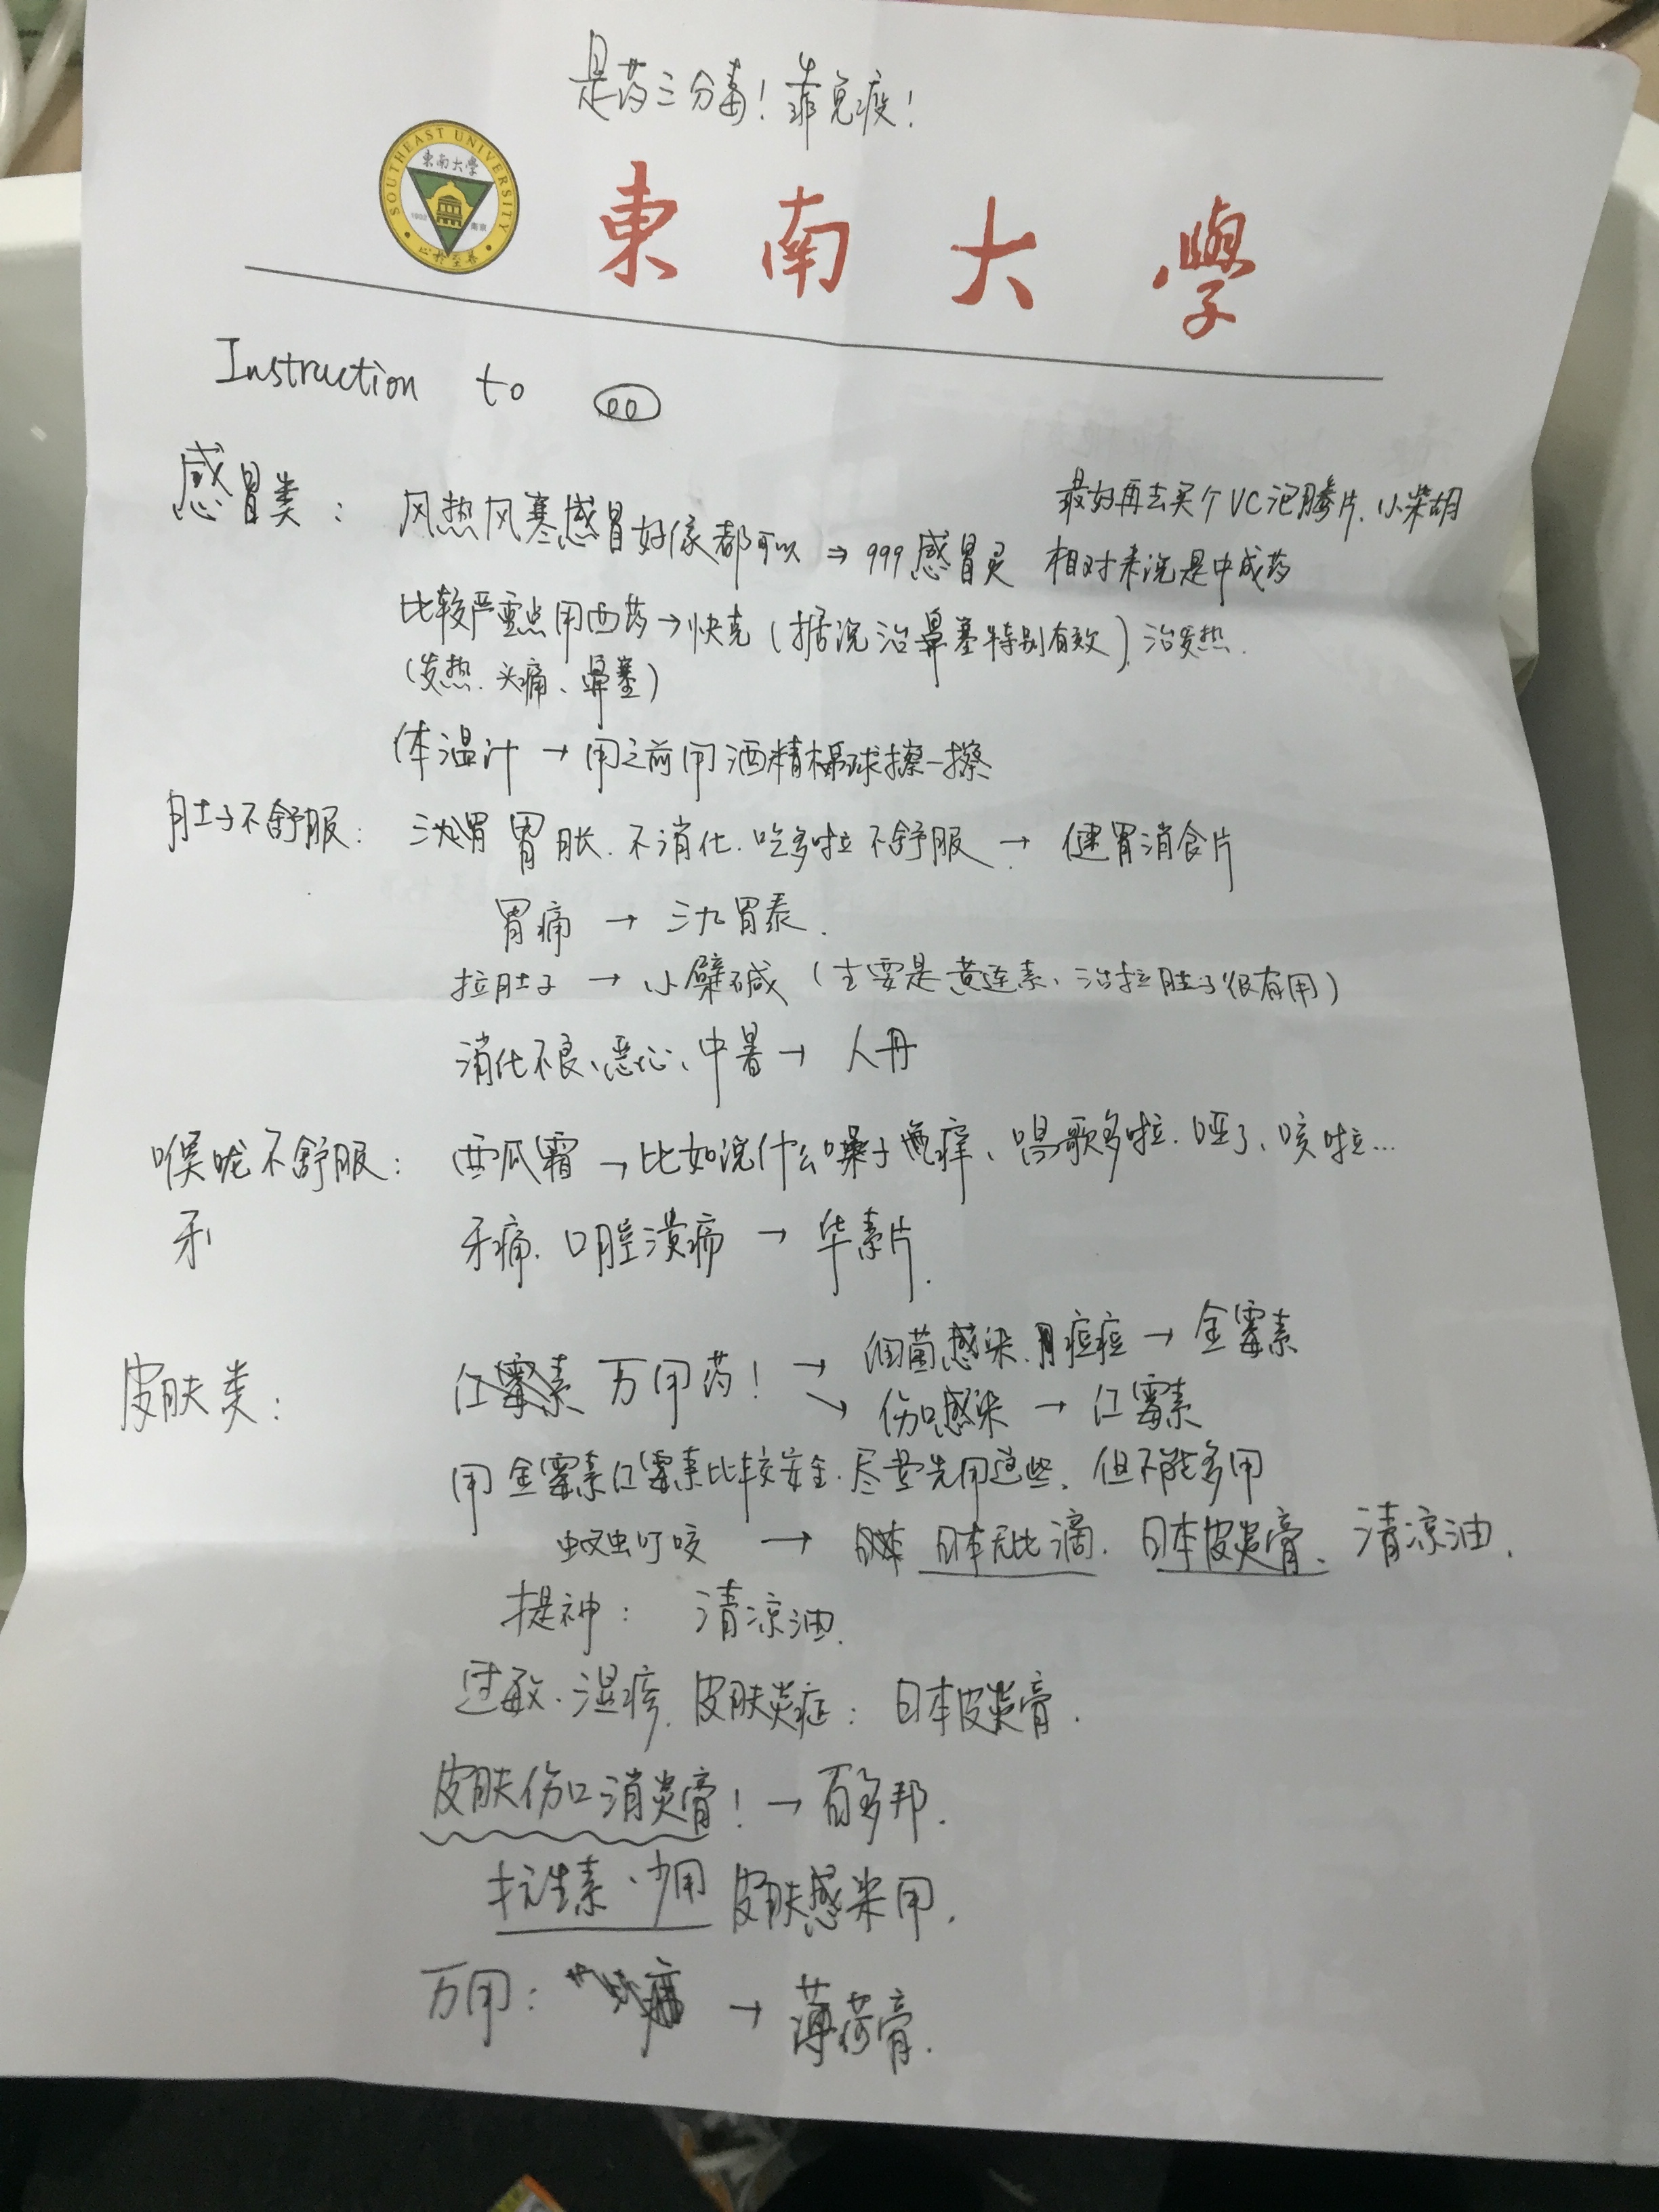 是药三分毒！靠免疫！
SOUTHEAST UNIVERSITY
東南大學
1902 南京
止於至善
東南大學
Instruction to
感冒类：
最好再去买个VC泡腾片、小柴胡
风热风寒感冒好像都可以 → 999感冒灵 相对来说是中成药
比较严重点用西药→快克（据说治鼻塞特别有效）、治发热.
（发热、头痛、鼻塞）
体温计 → 用之前用酒精棉球擦一擦
肚子不舒服： 胃胀、不消化、吃多啦不舒服 → 健胃消食片
胃痛 → 三九胃泰.
拉肚子 → 小檗碱（主要是黄连素、治拉肚子很有用）
消化不良、恶心、中暑→ 人丹
喉咙不舒服： 西瓜霜→比如说什么嗓子痒、唱歌多啦、哑了、咳啦…
牙 牙痛、口腔溃疡 → 华素片.
皮肤类： 红霉素 万用药！ → 细菌感染、痘痘 → 金霉素
↘ 伤口感染 → 红霉素
用金霉素红霉素比较安全、尽量先用这些、但不能多用
蚊虫叮咬 → 日本无比滴、日本皮炎膏、清凉油.
提神： 清凉油.
过敏、湿疹、皮肤炎症： 日本皮炎膏.
皮肤伤口消炎膏！→百多邦.
抗生素、少用 皮肤感染用.
万用： → 薄荷膏.